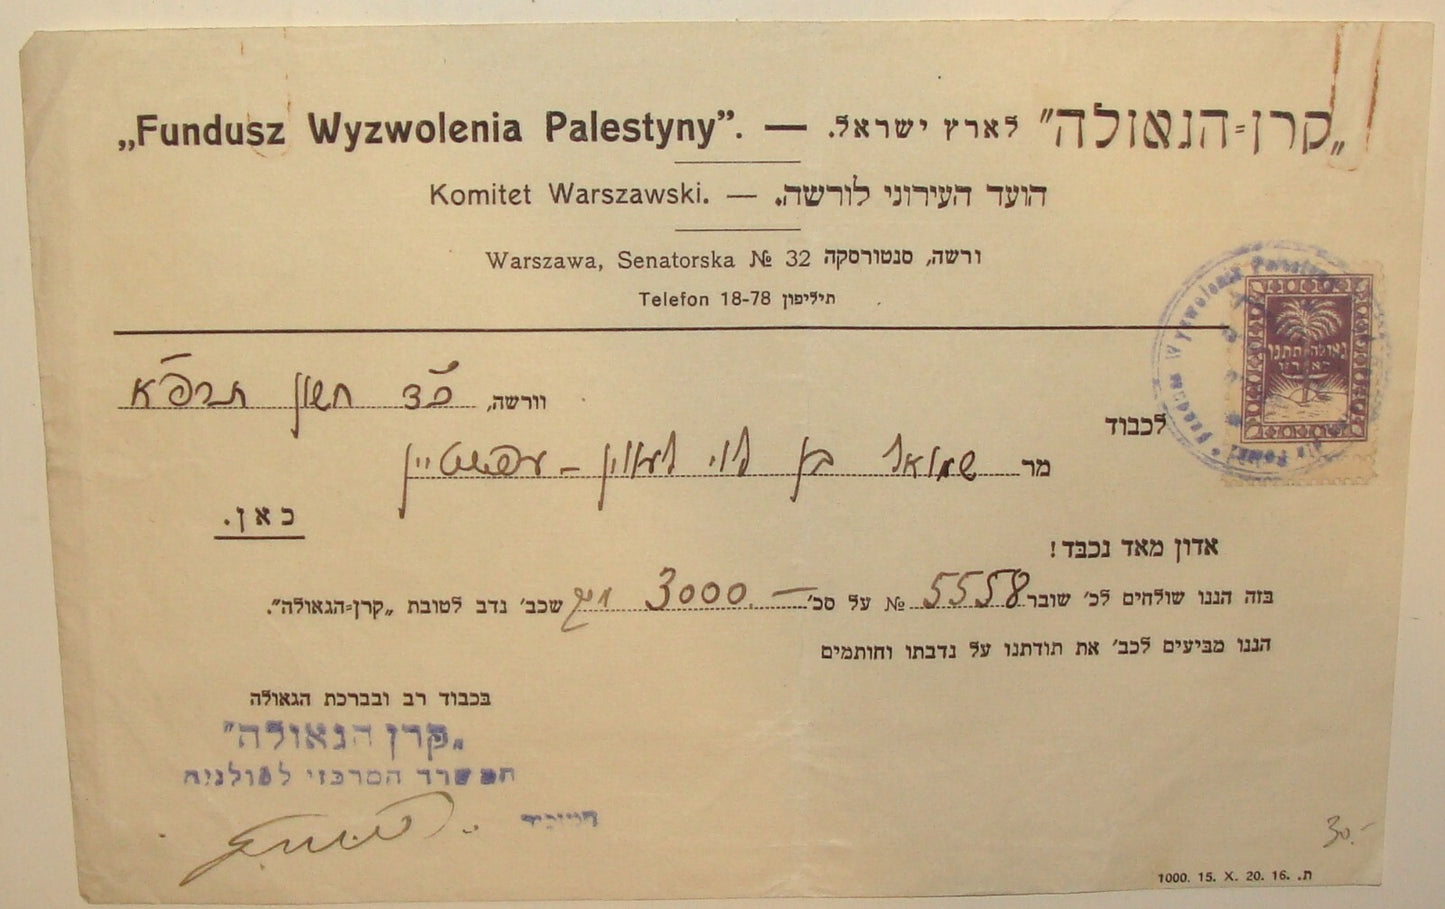 „Fundusz Wyzwolenia Palestyny”. — „קרן=הגאולה” לארץ ישראל.
Komitet Warszawski. — הועד העירוני לורשה.
Warszawa, Senatorska № 32 ורשה, סנטורסקה
Telefon 18-78 תיליפון
וורשה, כ"ד חשון תרפ"א
לכבוד
מר שמואל בן לוי לעווין – עפשטיין
כאן.
אדון מאד נכבד!
בזה הננו שולחים לכ' שובר 5558 № על סכ' 3000.— שכב' נדב לטובת „קרן=הגאולה”.
הננו מביעים לכב' את תודתנו על נדבתו וחותמים
בכבוד רב ובברכת הגאולה
„קרן הגאולה”
המשרד המרכזי לפולניה
גאולה תתנו
לארץ
Fundusz Wyzwolenia Palestyny
30.-
1000. 15. X. 20. 16. .ת